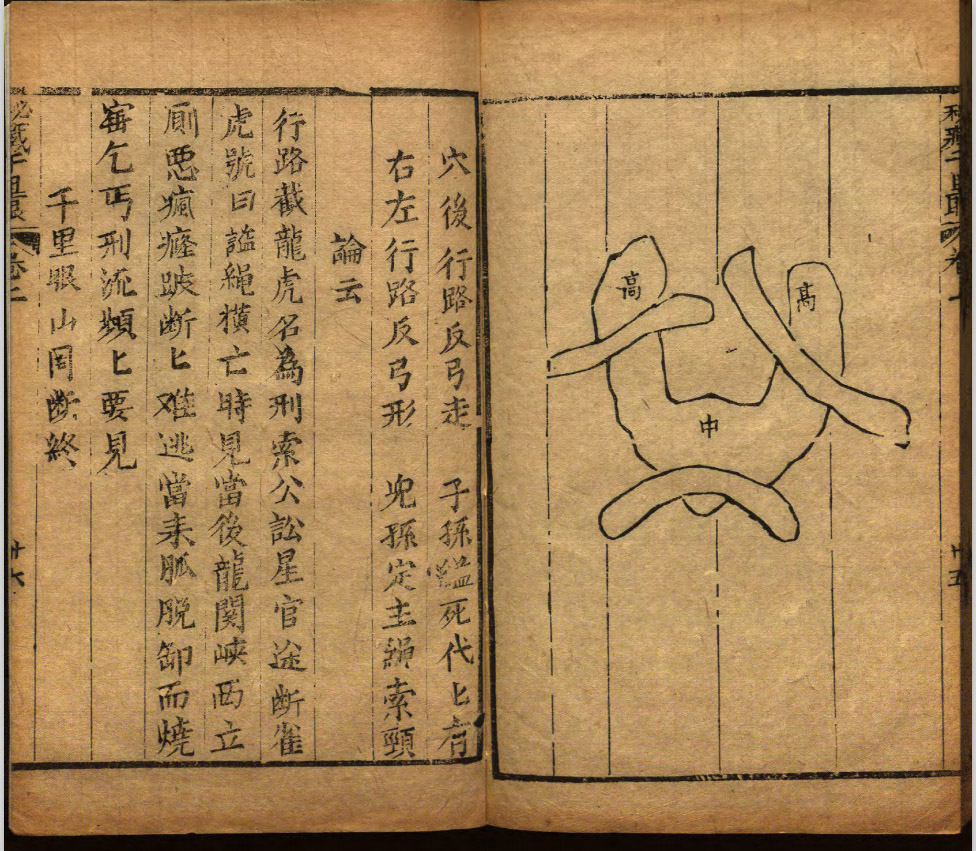 高
高
中
廿五
穴後行路反弓走　子孫縊死代匕有
右左行路反弓形　兒孫定主繩索頸
論云
行路截龍虎名為刑索公訟星官途断雀
虎號曰謚繩橫亡時見當後龍関峽西立
厠悪瘋癃跛断匕难逃當来脈脱卸而燒
窑乞丐刑流頻匕要見
千里眼山冈断終
卷二
廿六